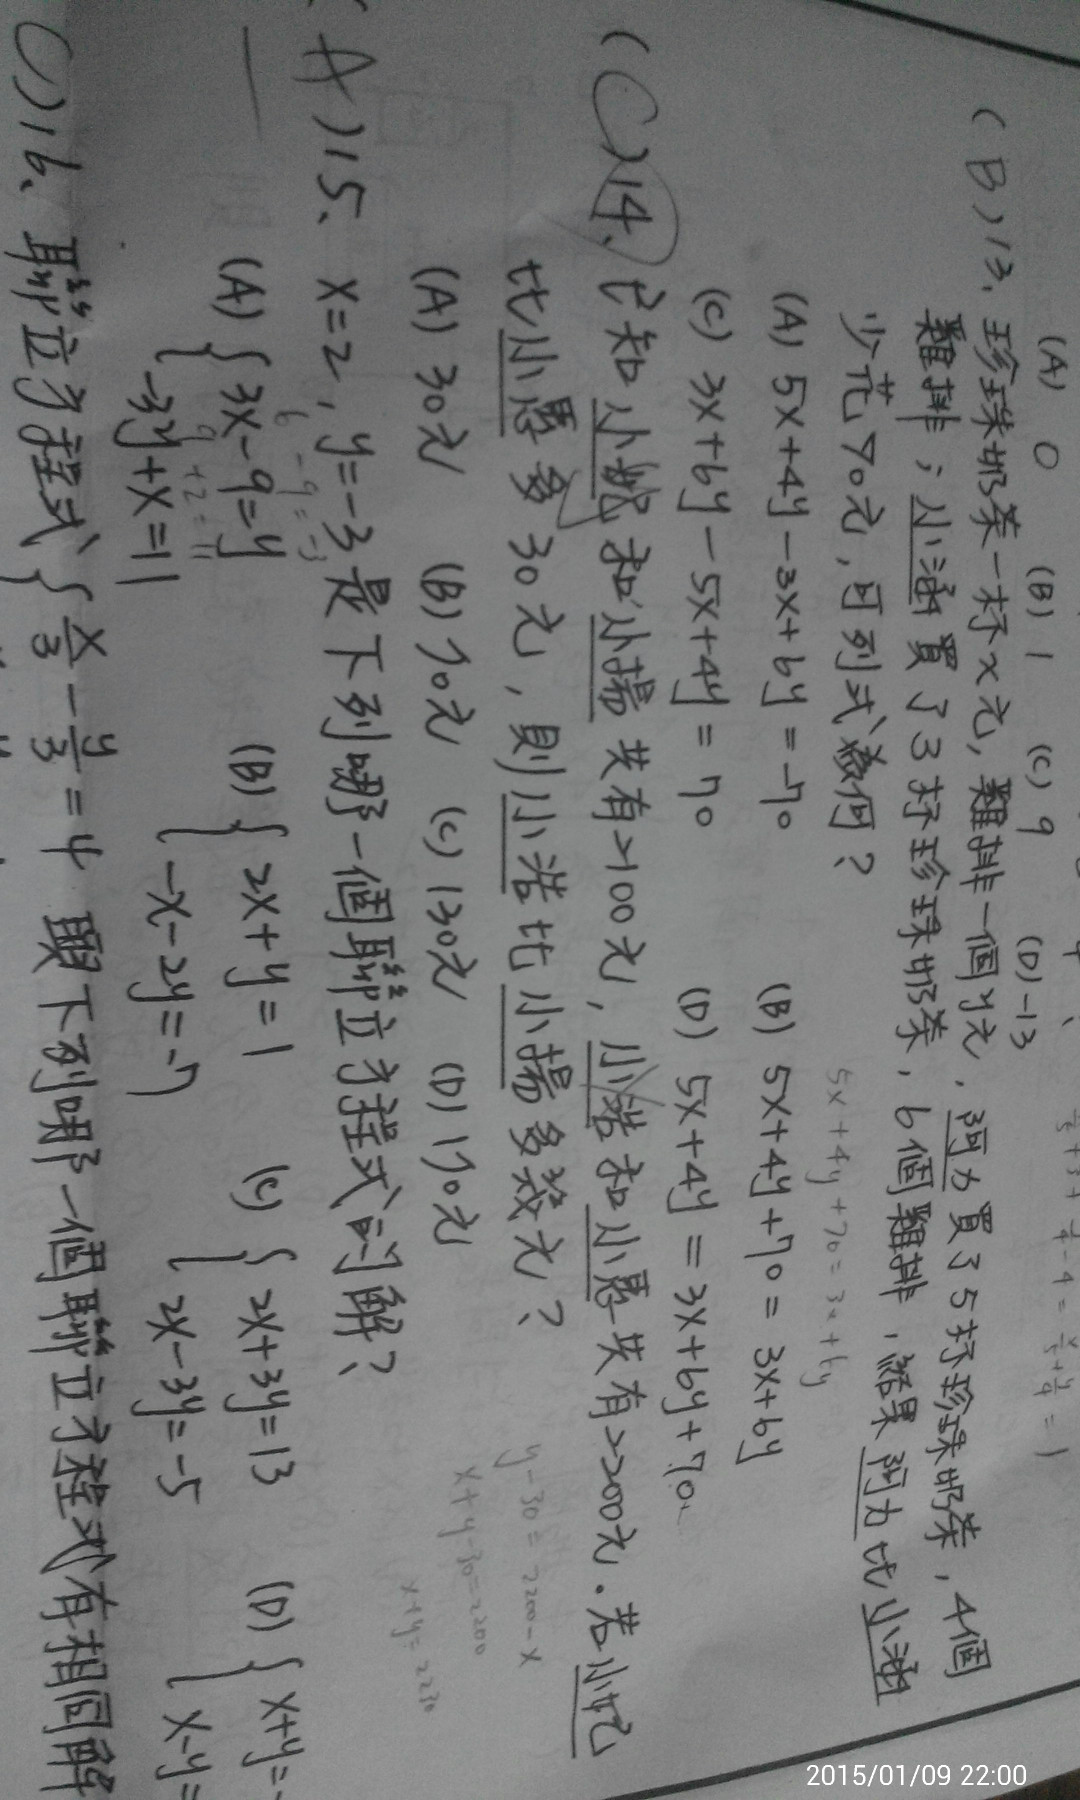 (A) 0 (B) 1 (C) 9 (D) -13
(B)13、珍珠奶茶一杯x元,雞排一個y元,阿力買了5杯珍珠奶茶,4個
雞排;小涵買了3杯珍珠奶茶,6個雞排,結果阿力比小涵
少花70元,可列式為何?
5x+4y+70=3x+6y
(A) 5x+4y-3x+6y=-70 (B) 5x+4y+70=3x+6y
(C) 3x+6y-5x+4y=70 (D) 5x+4y=3x+6y+70
(C)14、已知小妮和小揚共有2100元,小浩和小愚共有2200元.若小妮
比小愚多30元,則小浩比小揚多幾元?
y-30=2200-x
x+y-30=2200
x+y=2230
(A) 30元 (B) 70元 (C) 130元 (D) 170元
(A)15、x=2,y=-3是下列哪一個聯立方程式的解?
6-9=-3
(A) { 3x-9=y (B) { 2x+y=1 (C) { 2x+3y=13 (D) { x+y=-
9+2=11
-3y+x=11 -x-2y=-7 2x-3y=-5 x-y=
( )16、聯立方程式 { x/3 - y/3 = 4 與下列哪一個聯立方程式有相同解
2015/01/09 22:00